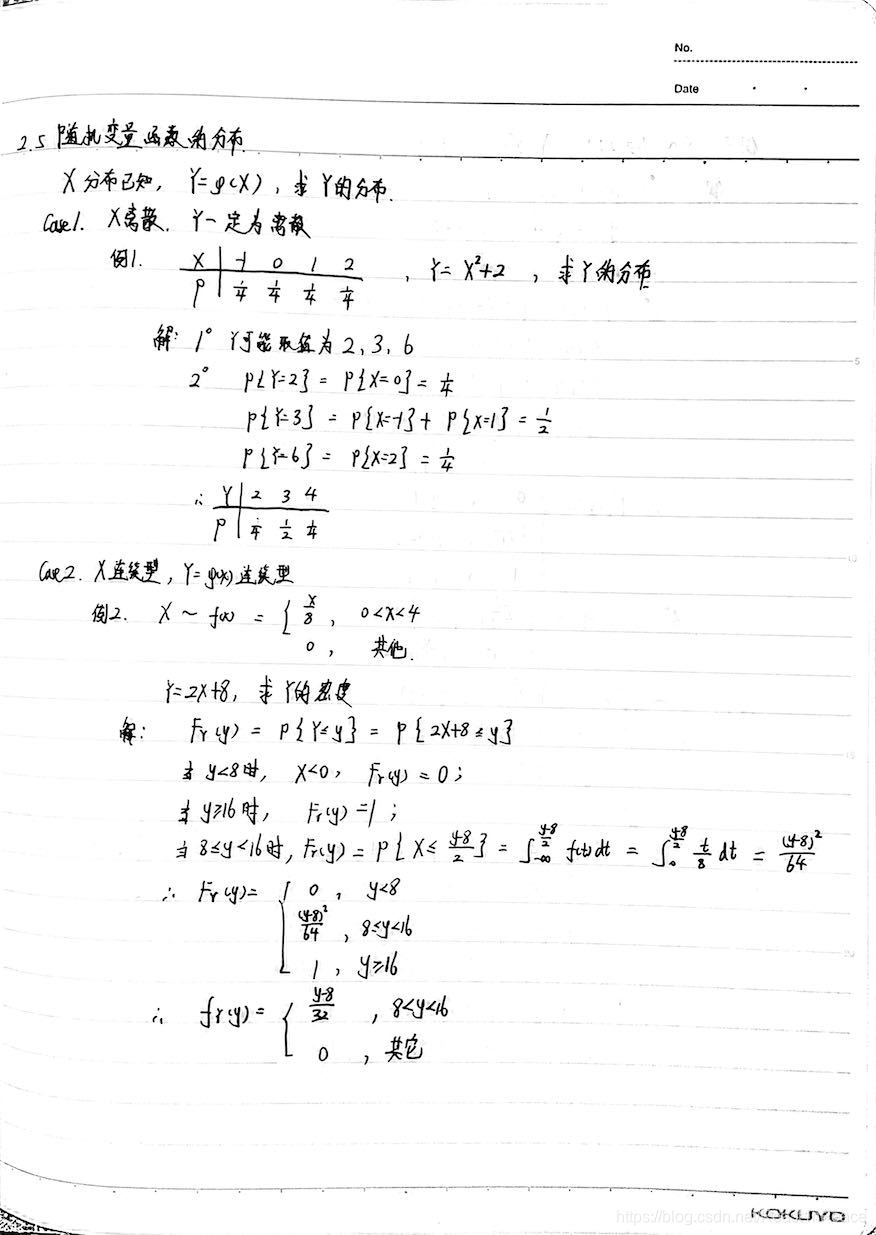 No.
Date
2.5 随机变量函数的分布.
X 分布已知, Y=φ(X), 求 Y的分布.
Case1. X离散. Y一定为离散
例1. X | -1 0 1 2 , Y= X²+2 , 求Y的分布
P | 1/4 1/4 1/4 1/4
解: 1° Y可能取值为 2, 3, 6
2° P{Y=2} = P{X=0} = 1/4
P{Y=3} = P{X=-1} + P{X=1} = 1/2
P{Y=6} = P{X=2} = 1/4
∴ Y | 2 3 4
P | 1/4 1/2 1/4
Case2. X连续型, Y=φ(x)连续型
例2. X ~ f(x) = { x/8 , 0<x<4
0 , 其他.
Y=2X+8, 求Y的密度
解: F_Y(y) = P{Y≤y} = P{2X+8≤y}
当 y<8时, X<0, F_Y(y) = 0;
当 y≥16时, F_Y(y) = 1;
当 8≤y<16时, F_Y(y) = P{X≤ (y-8)/2} = ∫_{-∞}^{(y-8)/2} f(t)dt = ∫_0^{(y-8)/2} t/8 dt = (y-8)²/64
∴ F_Y(y) = { 0 , y<8
(y-8)²/64 , 8≤y<16
1 , y≥16
∴ f_Y(y) = { (y-8)/32 , 8<y<16
0 , 其它
5
10
15
20
KOKUYO